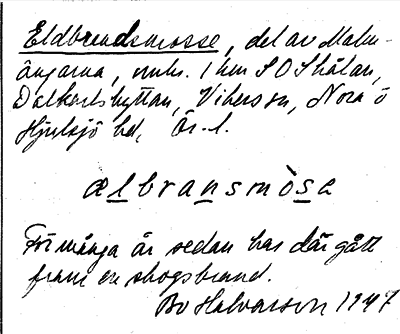 Eldbrandsmosse, del av Malm-
ängarna, omkr. 1 km SO Skålan,
Dalkarlshyttan, Vikers sn, Nora o
Hjulsjö bd, Ör. l.
ælbransmòsa
För många år sedan har där gått
fram en skogsbrand.
Bo Halvarson 1947